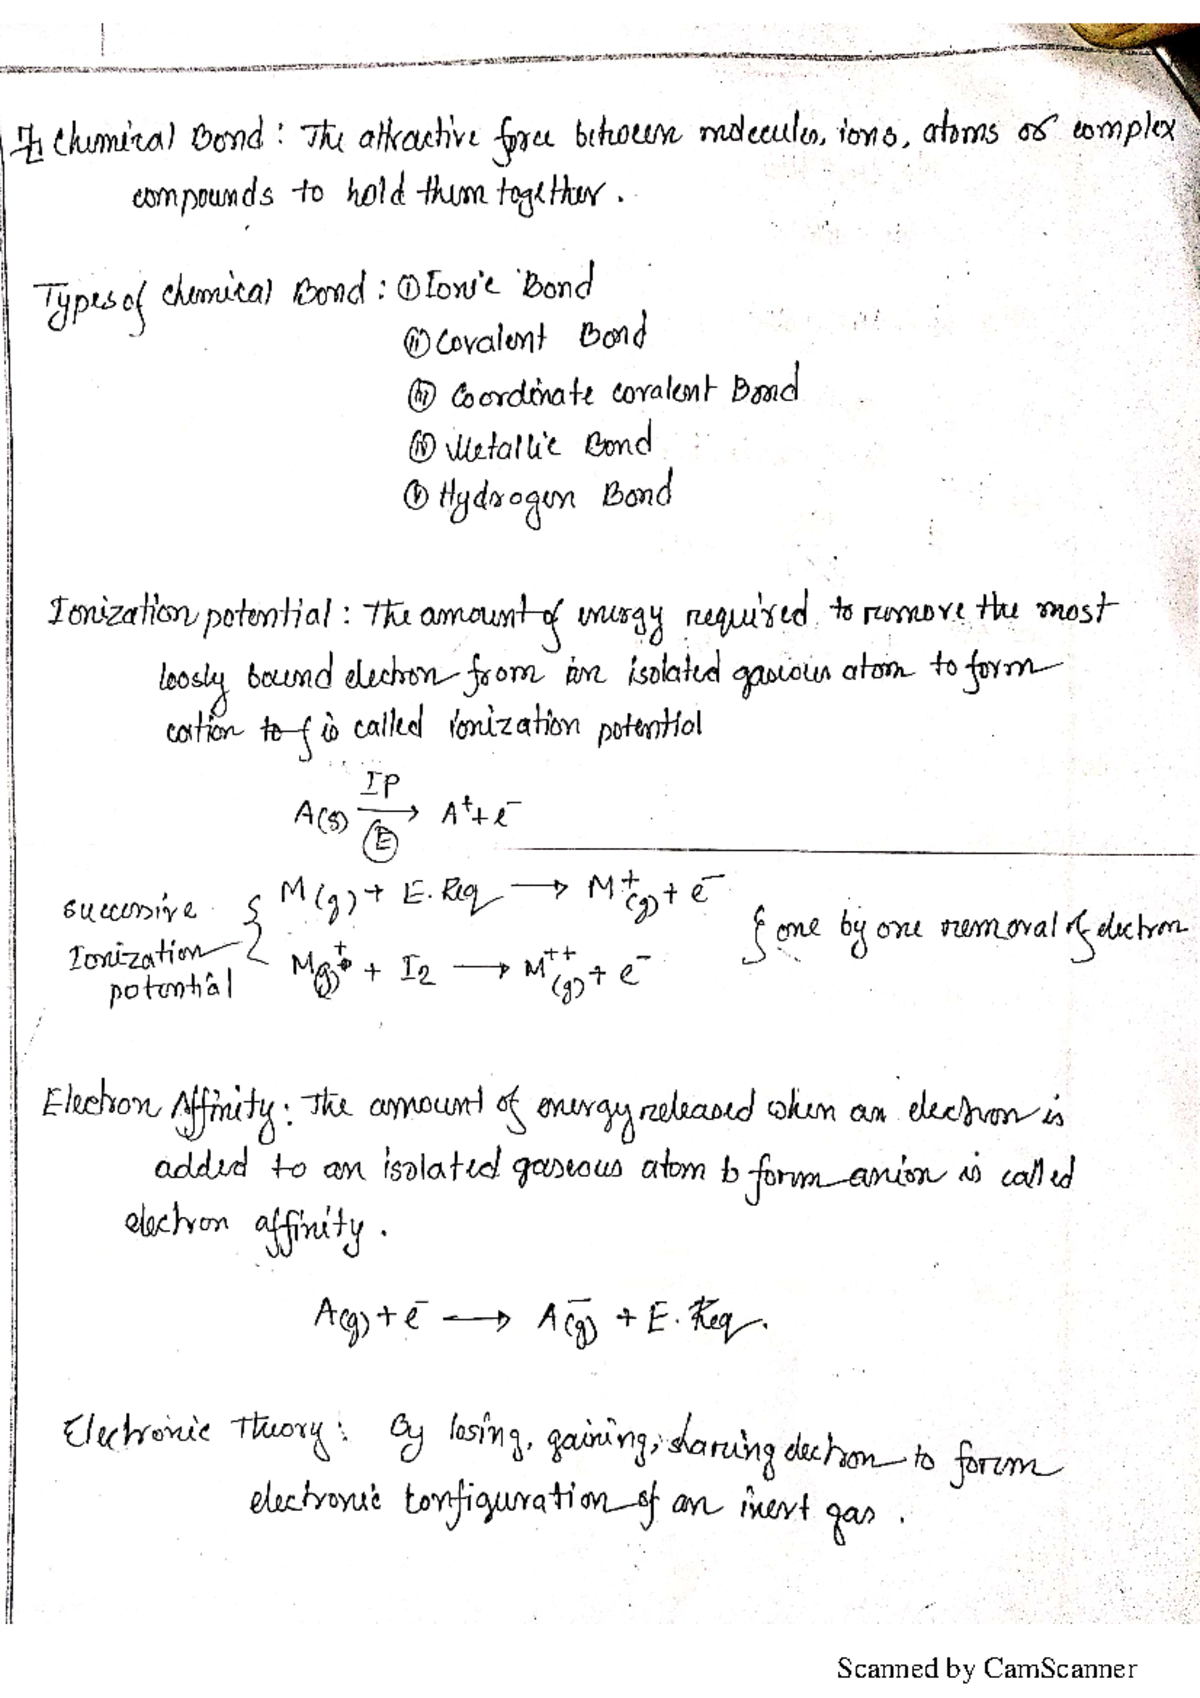 Chemical Bond : The attractive force between molecules, ions, atoms or complex
compounds to hold them together .
Types of Chemical Bond : (i) Ionic Bond
(ii) Covalent Bond
(iii) Coordinate covalent Bond
(iv) Metallic Bond
(v) Hydrogen Bond
Ionization potential : The amount of energy required to remove the most
loosly bound electron from an isolated gaseous atom to form
cation is called ionization potential
IP
A(g) ⟶ A⁺ + e⁻
(E)
M(g) + E. Req ⟶ M⁺(g) + e⁻
successive
Ionization
potential
{ one by one removal of electron
M(g)⁺ + I2 ⟶ M⁺⁺(g) + e⁻
Electron Affinity : The amount of energy released when an electron is
added to an isolated gaseous atom to form anion is called
electron affinity .
A(g) + e⁻ ⟶ A⁻(g) + E. Req.
Electronic Theory : By losing, gaining, sharing electron to form
electronic configuration of an inert gas .
Scanned by CamScanner